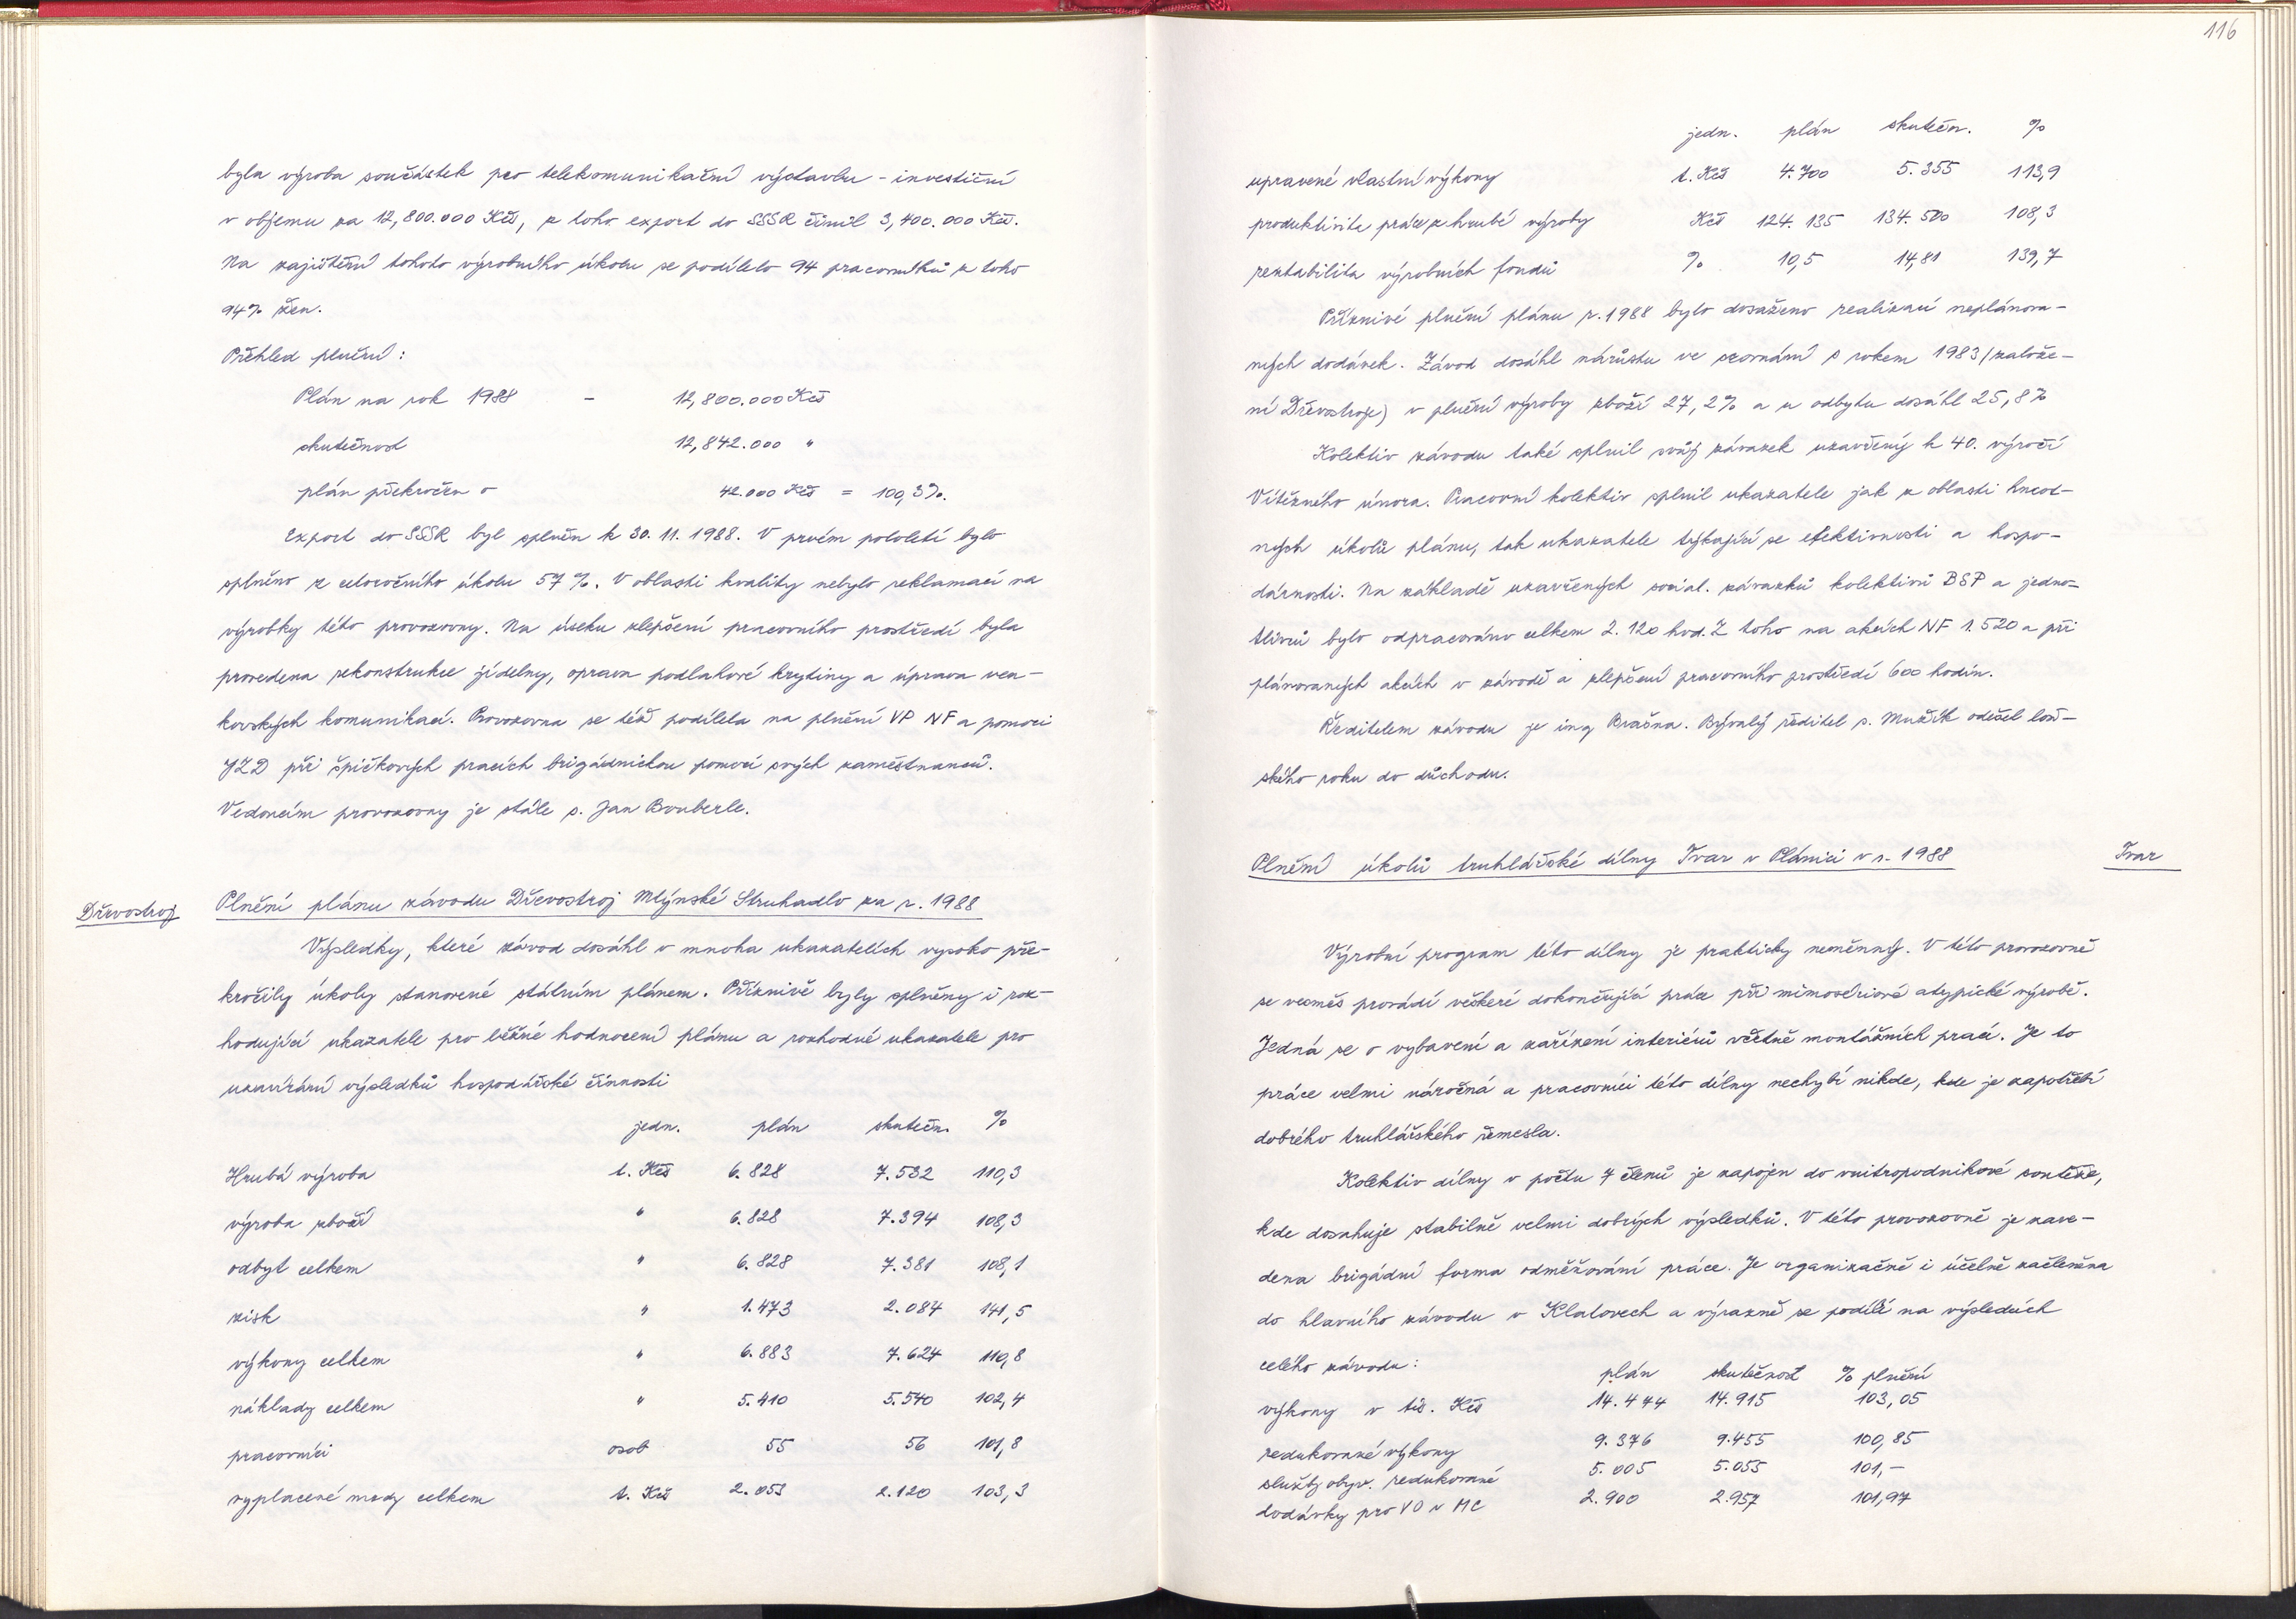 byla výroba součástek pro telekomunikační výstavbu - investiční
v objemu za 12,800.000 Kčs, z toho export do SSSR činil 3,400.000 Kčs.
Na zajištění tohoto výrobního úkolu se podílelo 94 pracovníků z toho
94% žen.
Přehled plnění:
Plán na rok 1988 - 12,800.000 Kčs
skutečnost 12,842.000 "
plán překročen o 42.000 Kčs = 100,3%.
Export do SSSR byl splněn k 30. 11. 1988. V prvém pololetí bylo
splněno z celoročního úkolu 57%. V oblasti kvality nebylo reklamací na
výrobky této provozovny. Na úseku zlepšení pracovního prostředí byla
provedena rekonstrukce jídelny, oprava podlahové krytiny a úprava ven-
kovských komunikací. Provozovna se též podílela na plnění VP NF a pomoci
JZD při špičkových pracích brigádnickou pomocí svých zaměstnanců.
Vedoucím provozovny je stále s. Jan Bouberle.
Dřevostroj
Plnění plánu závodu Dřevostroj Mlýnské Struhadlo za r. 1988
Výsledky, které závod dosáhl v mnoha ukazatelích vysoko pře-
kročily úkoly stanovené státním plánem. Příznivě byly splněny i roz-
hodující ukazatele pro běžné hodnocení plánu a rozhodné ukazatele pro
uzavírání výsledků hospodářské činnosti
jedn. plán skutečn. %
Hrubá výroba t. Kčs 6.828 7.532 110,3
výroba zboží " 6.828 7.394 108,3
odbyt celkem " 6.828 7.381 108,1
zisk " 1.473 2.084 141,5
výkony celkem " 6.883 7.624 110,8
náklady celkem " 5.410 5.540 102,4
pracovníci osob 55 56 101,8
vyplacené mzdy celkem t. Kčs 2.053 2.120 103,3
116
jedn. plán skutečn. %
upravené vlastní výkony t. Kčs 4.700 5.355 113,9
produktivita práce z hrubé výroby Kčs 124.135 134.500 108,3
rentabilita výrobních fondů % 10,5 14,81 139,7
Příznivé plnění plánu r. 1988 bylo dosaženo realizací neplánova-
ných dodávek. Závod dosáhl nárůstu ve srovnání s rokem 1983 /založe-
ní Dřevostroje) v plnění výroby zboží 27,2% a u odbytu dosáhl 25,8%
Kolektiv závodu také splnil svůj závazek uzavřený k 40. výročí
Vítězného února. Pracovní kolektiv splnil ukazatele jak z oblasti hmot-
ných úkolů plánu, tak ukazatele týkající se efektivnosti a hospo-
dárnosti. Na základě uzavřených social. závazků kolektivů BSP a jedno-
tlivců bylo odpracováno celkem 2.120 hod. Z toho na akcích NF 1.520 a při
plánovaných akcích v závodě a zlepšení pracovního prostředí 600 hodin.
Ředitelem závodu je ing Brašna. Bývalý ředitel s. Mužík odešel loň-
ského roku do důchodu.
Plnění úkolů truhlářské dílny Tvar v Plánici v r. 1988
Tvar
Výrobní program této dílny je prakticky neměnný. V této provozovně
se vesměs provádí veškeré dokončující práce při mimosériové atypické výrobě.
Jedná se o vybavení a zařízení interiérů včetně montážních prací. Je to
práce velmi náročná a pracovníci této dílny nechybí nikde, kde je zapotřebí
dobrého truhlářského řemesla.
Kolektiv dílny v počtu 7 členů je zapojen do vnitropodnikové soutěže,
kde dosahuje stabilně velmi dobrých výsledků. V této provozovně je zave-
dena brigádní forma odměňování práce. Je organizačně i účelně začleněna
do hlavního závodu v Klatovech a výrazně se podílí na výsledcích
celého závodu:
plán skutečnost % plnění
výkony v tis. Kčs 14.474 14.915 103,05
redukované výkony 9.376 9.455 100,85
služby obyv. redukované 5.005 5.055 101,-
dodávky pro VO v MC 2.900 2.957 101,97